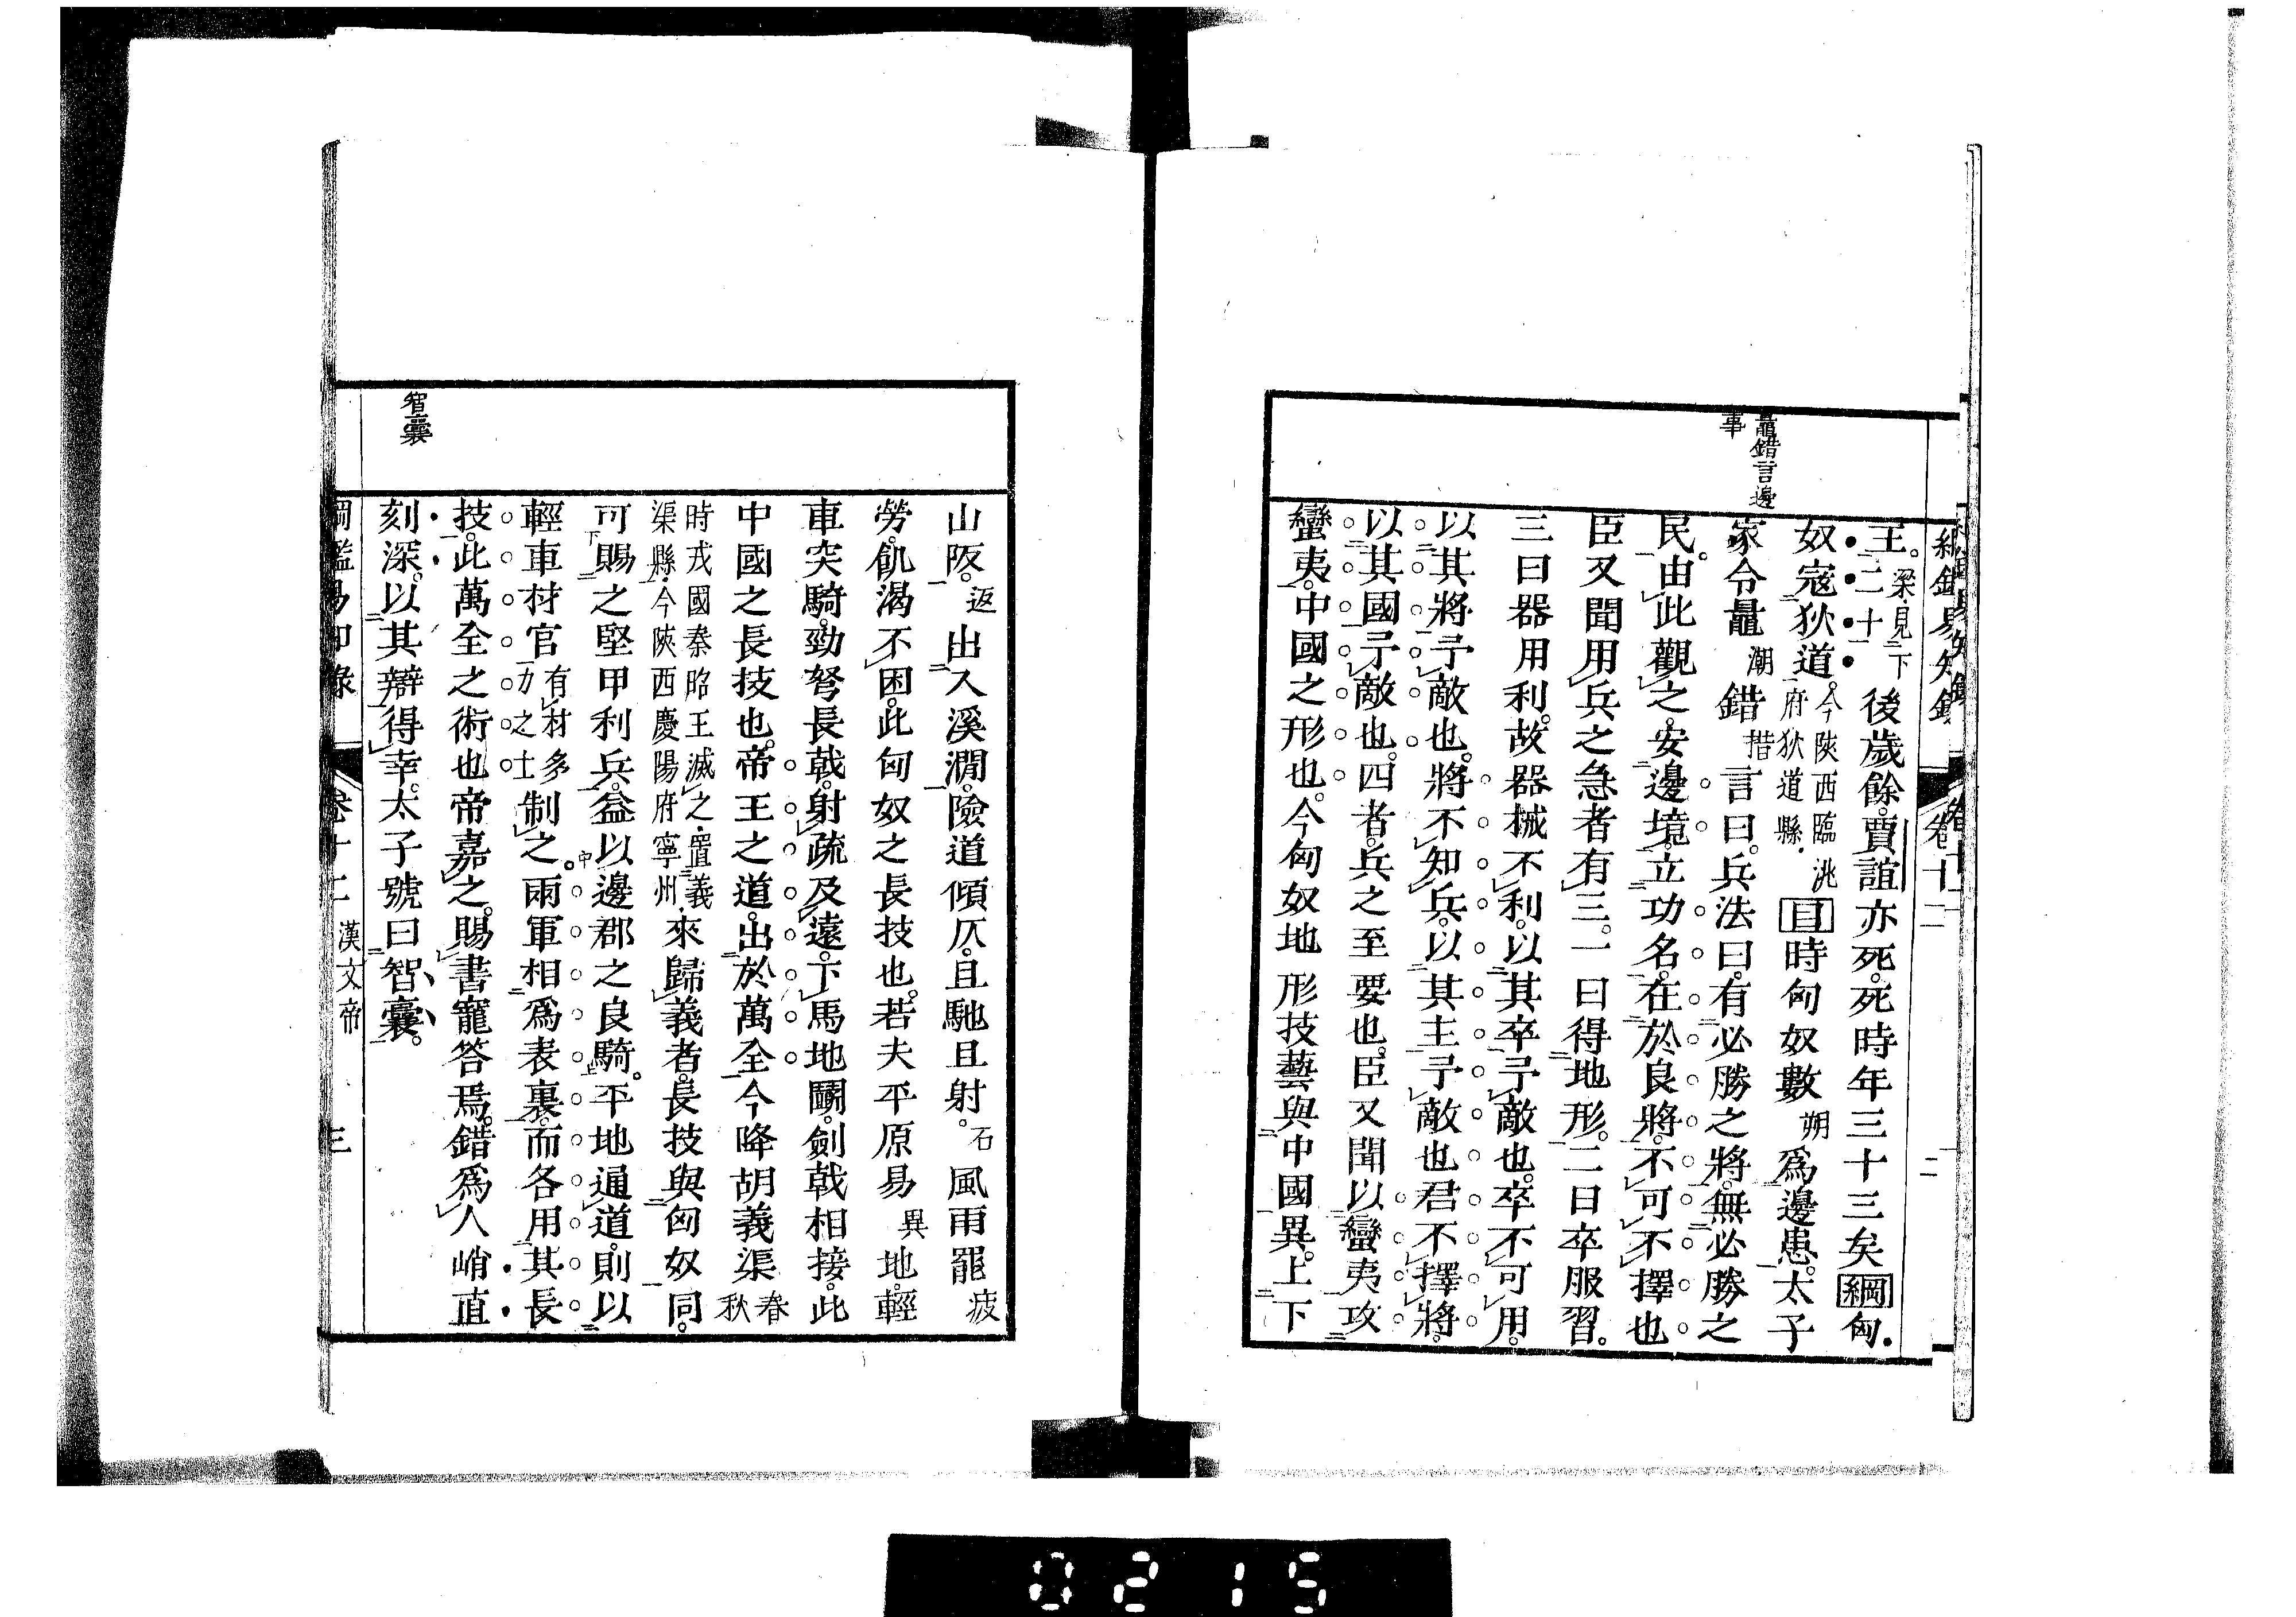 鼂錯言邊
事
王。梁見下二十後歲餘。賈誼亦死。死時年三十三矣綱匈
奴寇狄道。今陝西臨洮府狄道縣目時匈奴數朔爲邊患。太子
家令鼂潮錯措言曰。兵法曰。有必勝之將。無必勝之
民。由此觀之。安邊境。立功名。在於良將。不可不擇也
臣又聞用兵之急者有三。一曰得地形。二曰卒服習。
三曰器用利。故器械不利。以其卒予敵也。卒不可用。
以其將予敵也。將不知兵。以其主予敵也君不擇將。
以其國予敵也。四者。兵之至要也。臣又聞以蠻夷攻
蠻夷。中國之形也。今匈奴地形技藝與中國異。上下
山阪。返出入溪澗。險道傾仄。且馳且射。石風雨罷疲
勞。飢渴不困。此匈奴之長技也。若夫平原易異地。輕
車突騎。勁弩長戟。射疏及遠。下馬地鬭。劍戟相接。此
中國之長技也。帝王之道。出於萬全今降胡義渠春秋
時戎國秦昭王滅之置義渠縣今陝西慶陽府寧州來歸義者。長技與匈奴同。
可賜之堅甲利兵。益以邊郡之良騎。平地通道。則以
輕車材官有材多力之士制之。兩軍相爲表裏。而各用其長
技。此萬全之術也帝嘉之。賜書寵答焉。錯爲人峭直
刻深。以其辯得幸。太子號曰智囊。
智囊
綱鑑易知錄 卷十二 漢文帝 三
0215